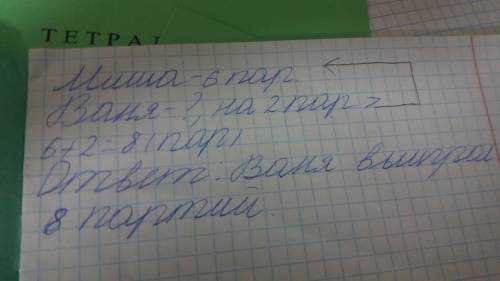 ТЕТРАД
Миша - 6 пар.
Ваня - ?, на 2 пар >
6+2=8 (пар)
Ответ: Ваня выиграл
8 партий.